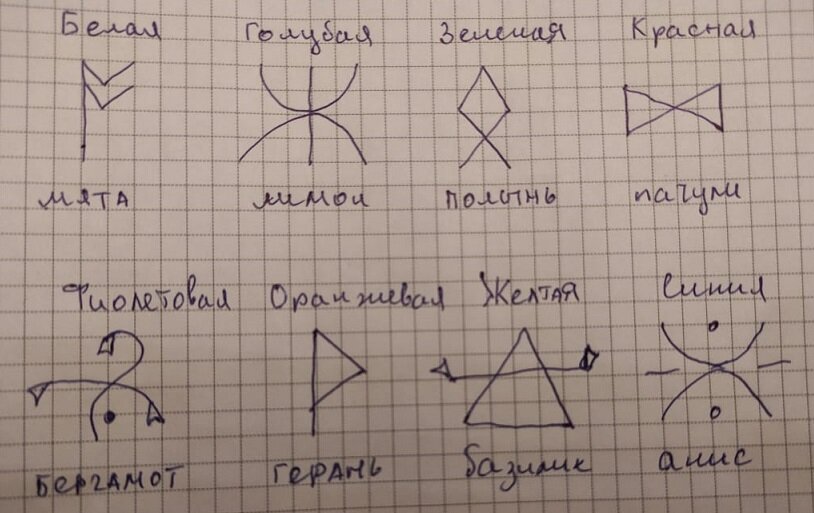 Белая Голубая Зеленая Красная
мята лимон полынь пачули
Фиолетовая Оранжевая Желтая Синия
бергамот герань базилик анис